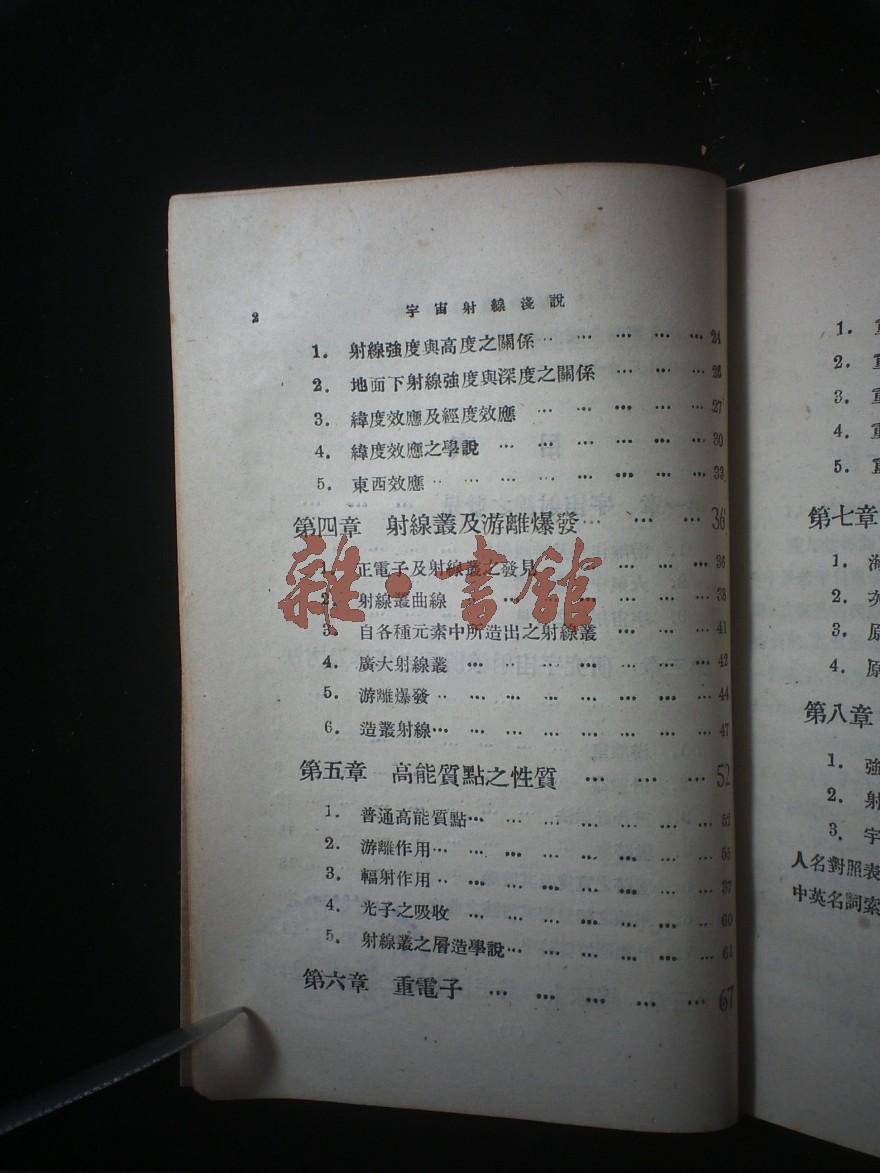 2 宇宙射線淺說
1. 射線強度與高度之關係 … … … … … 24
2. 地面下射線強度與深度之關係 … … … … 26
3. 緯度效應及經度效應 … … … … … 27
4. 緯度效應之學說 … … … … … … 30
5. 東西效應 … … … … … … … … 33
第四章 射線叢及游離爆發 … … … 36
1. 正電子及射線叢之發見 … … … … 36
2. 射線叢曲線 … … … … … 38
3. 自各種元素中所造出之射線叢 … … … 41
4. 廣大射線叢 … … … … … … 42
5. 游離爆發 … … … … … … … 44
6. 造叢射線 … … … … … … … 47
第五章 高能質點之性質 … … … 52
1. 普通高能質點 … … … … … … 52
2. 游離作用 … … … … … … … 55
3. 輻射作用 … … … … … … … 37
4. 光子之吸收 … … … … … … 60
5. 射線叢之層造學說 … … … … … 61
第六章 重電子 … … … … … 67
雜·書館
1.
2. 重
3. 重
4. 重
5. 重
第七章
1. 海
2.
3. 原
4. 原
第八章
1. 強
2. 射
3. 宇
人名對照表
中英名詞索